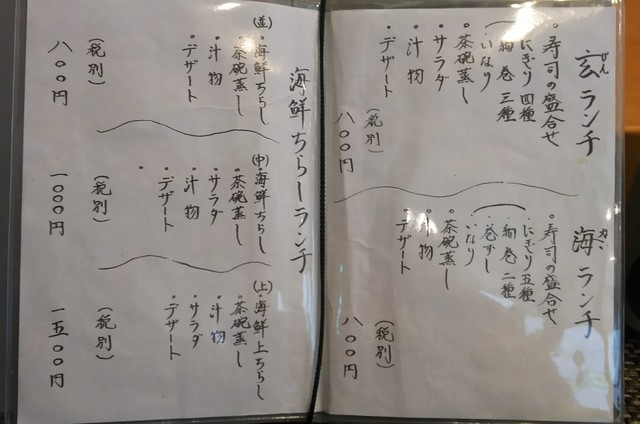 玄ランチ
げん
・寿司の盛合せ
・にぎり四種
・細巻三種
・いなり
・茶碗蒸し
・サラダ
・汁物
・デザート
(税別)
八〇〇円
海ランチ
かい
・寿司の盛合せ
・にぎり五種
・細巻二種
・巻ずし
・いなり
・茶碗蒸し
・汁物
・デザート
(税別)
八〇〇円
海鮮ちらしランチ
(並)・海鮮ちらし
・茶碗蒸し
・汁物
・デザート
(税別)
八〇〇円
(中)・海鮮ちらし
・茶碗蒸し
・サラダ
・汁物
・デザート
(税別)
一〇〇〇円
(上)・海鮮上ちらし
・茶碗蒸し
・汁物
・サラダ
・デザート
(税別)
一五〇〇円